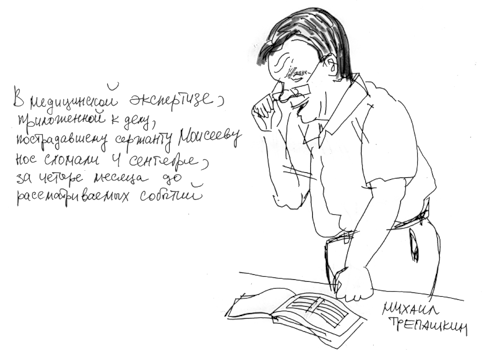 В медицинской экспертизе,
приложенной к делу,
пострадавшему сержанту Моисееву
нос сломали 4 сентября,
за четыре месяца до
рассматриваемых событий
МИХАИЛ
ТРЕПАШКИН